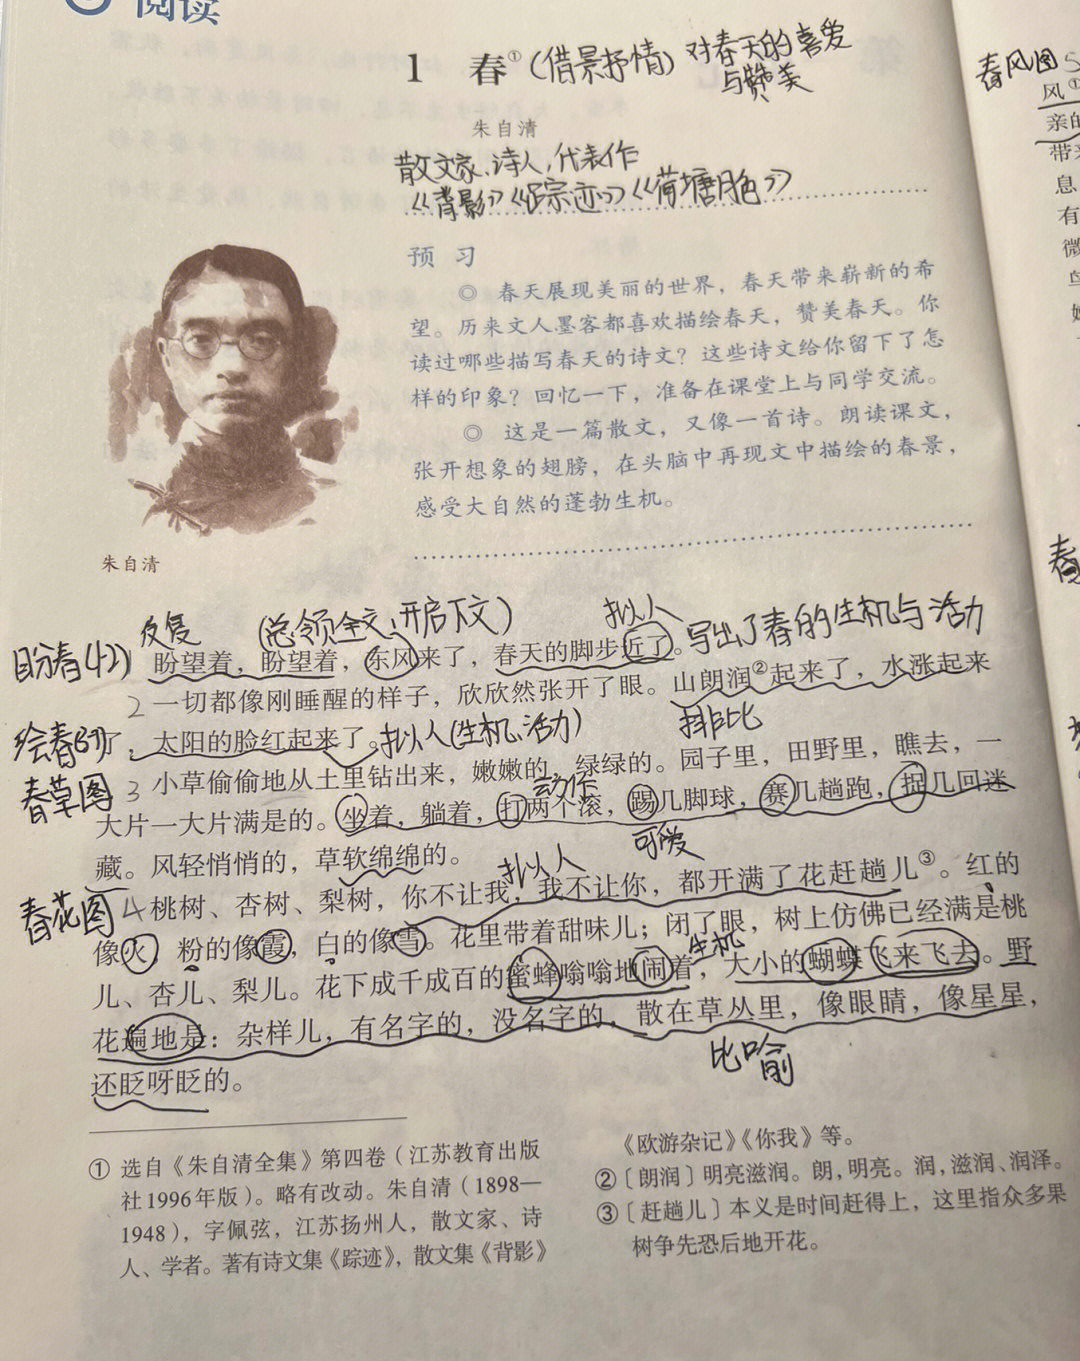 阅读
1 春① (借景抒情) 对春天的喜爱
与赞美
朱自清
散文家、诗人,代表作
《背影》《踪迹》《荷塘月色》
预 习
◎ 春天展现美丽的世界，春天带来崭新的希
望。历来文人墨客都喜欢描绘春天，赞美春天。你
读过哪些描写春天的诗文？这些诗文给你留下了怎
样的印象？回忆一下，准备在课堂上与同学交流。
◎ 这是一篇散文，又像一首诗。朗读课文，
张开想象的翅膀，在头脑中再现文中描绘的春景，
感受大自然的蓬勃生机。
朱自清
反复 (总领全文,开启下文) 拟人 写出了春的生机与活力
盼春(1,2) 盼望着，盼望着，东风来了，春天的脚步近了。
2 一切都像刚睡醒的样子，欣欣然张开了眼。山朗润②起来了，水涨起来
绘春 了，太阳的脸红起来了。拟人(生机、活力) 排比
春草图 3 小草偷偷地从土里钻出来，嫩嫩的，绿绿的。园子里，田野里，瞧去，一
动作
大片一大片满是的。坐着，躺着，打两个滚，踢几脚球，赛几趟跑，捉几回迷
藏。风轻悄悄的，草软绵绵的。 可爱
拟人
春花图 4 桃树、杏树、梨树，你不让我，我不让你，都开满了花赶趟儿③。红的
像火，粉的像霞，白的像雪。花里带着甜味儿；闭了眼，树上仿佛已经满是桃
生机
儿、杏儿、梨儿。花下成千成百的蜜蜂嗡嗡地闹着，大小的蝴蝶飞来飞去。野
花遍地是：杂样儿，有名字的，没名字的，散在草丛里，像眼睛，像星星，
还眨呀眨的。 比喻
① 选自《朱自清全集》第四卷（江苏教育出版
社1996年版）。略有改动。朱自清（1898—
1948），字佩弦，江苏扬州人，散文家、诗
人、学者。著有诗文集《踪迹》，散文集《背影》
《欧游杂记》《你我》等。
②〔朗润〕明亮滋润。朗，明亮。润，滋润、润泽。
③〔赶趟儿〕本义是时间赶得上，这里指众多果
树争先恐后地开花。
春风图
风①
亲的
带来
息
有
微
鸟
春